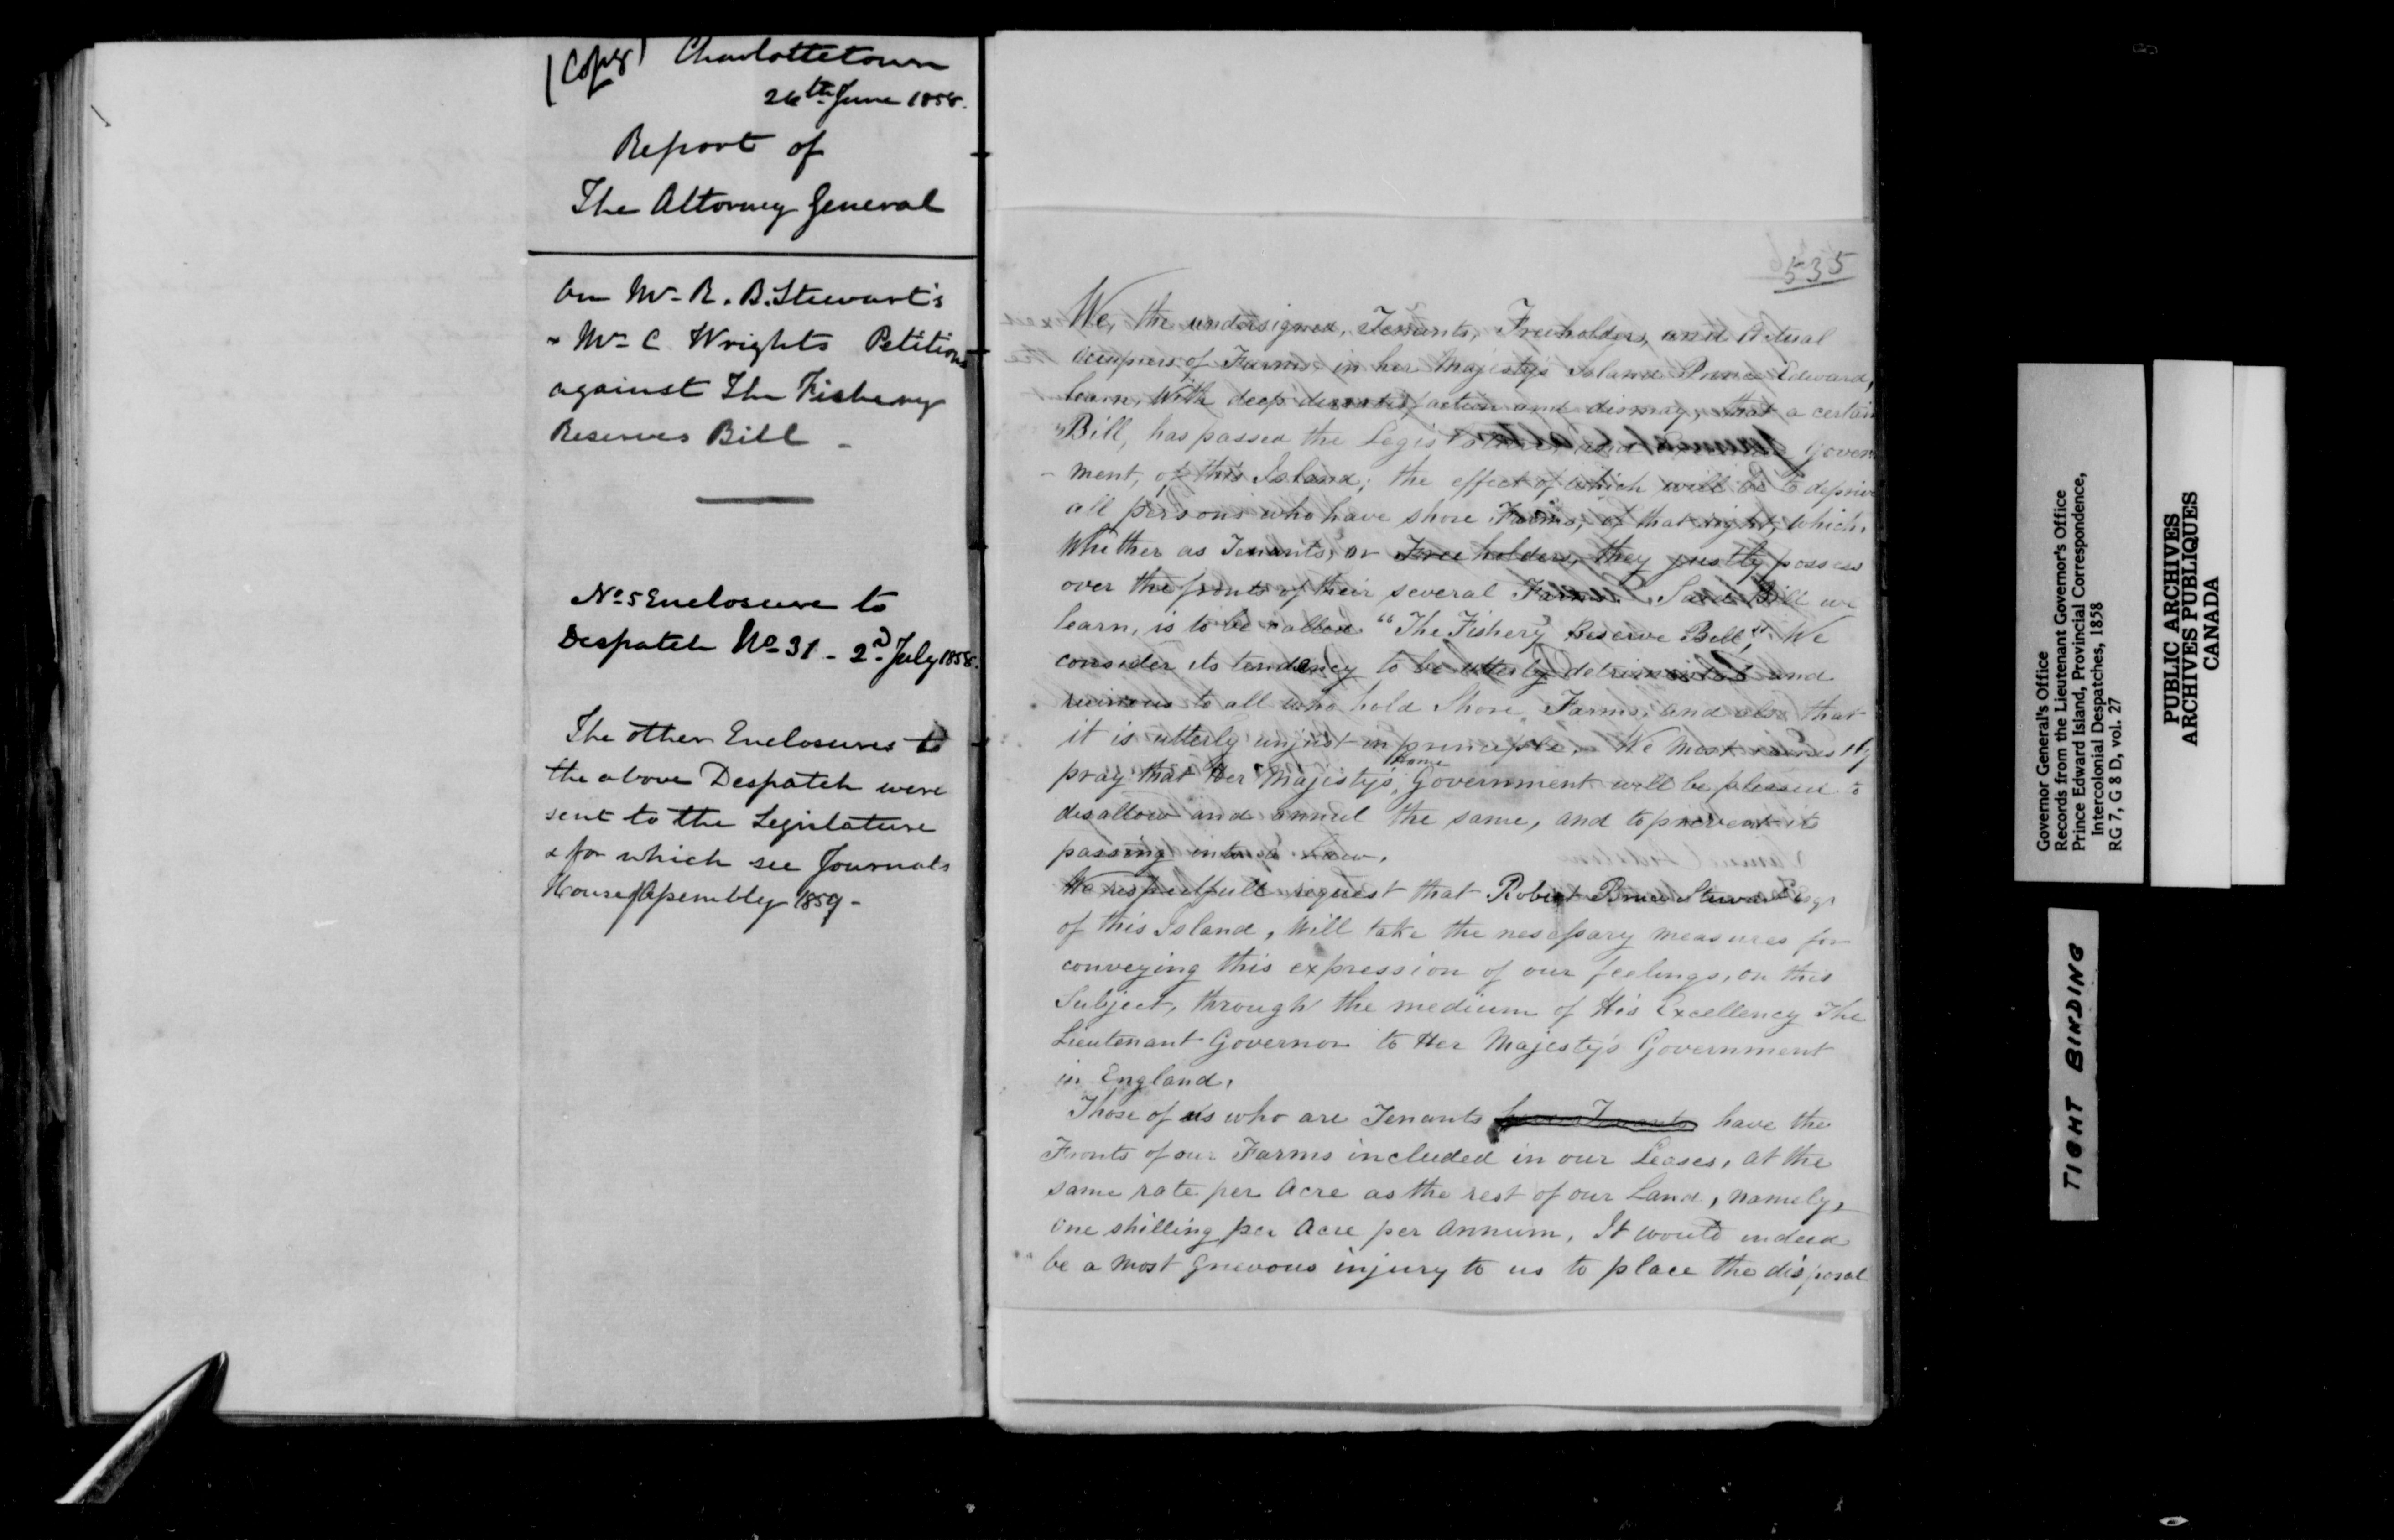 (Copy) Charlottetown
26th June 1858.
Report of
The Attorney General
On Mr R. B. Stewart's
& Mr C Wrights Petitions
against The Fishery
Reserves Bill -
No 5 Enclosure to
Despatch No 31 - 2nd July 1858.
The other Enclosures to
the above Despatch were
sent to the Legislature
& for which see Journals
House of Assembly 1859 -
535
We, the undersigned, Tenants, Freeholders, and Actual
occupiers of Farms, in her Majesty's Island Prince Edward,
learn, With deep dissatisfaction and dismay, that a certain
"Bill, has passed the Legislature, and Govern
- ment, of this Island; the effect of which will be to deprive
all persons who have shore Farms, of that right, which,
Whether as Tenants, or Freeholders, they justly possess
over the fronts of their several Farms. Said Bill we
learn, is to be called "The Fishery Reserve Bill," We
consider its tendency to be utterly detrimental and
ruinous to all who hold Shore Farms, and also that
it is utterly unjust in principle. We most earnestly
pray that Her Majesty's Home Government will be pleased to
disallow and annul the same, and to prevent its
passing into a Law.
We respectfull request that Robert Bruce Stewart Esqr
of this Island, Will take the nesessary measures for
conveying this expression of our feelings, on this
Subject, through the medium of His Excellency The
Lieutenant Governor to Her Majesty's Government
in England.
Those of us who are Tenants have the
Fronts of our Farms included in our Leases, at the
same rate per Acre as the rest of our Land, namely,
One shilling per Acre per Annum, It would indeed
be a most grievous injury to us to place the disposal
Governor General's Office
Records from the Lieutenant Governor's Office
Prince Edward Island, Provincial Correspondence,
Intercolonial Despatches, 1858
RG 7, G 8 D, vol. 27
PUBLIC ARCHIVES
ARCHIVES PUBLIQUES
CANADA
TIGHT BINDING